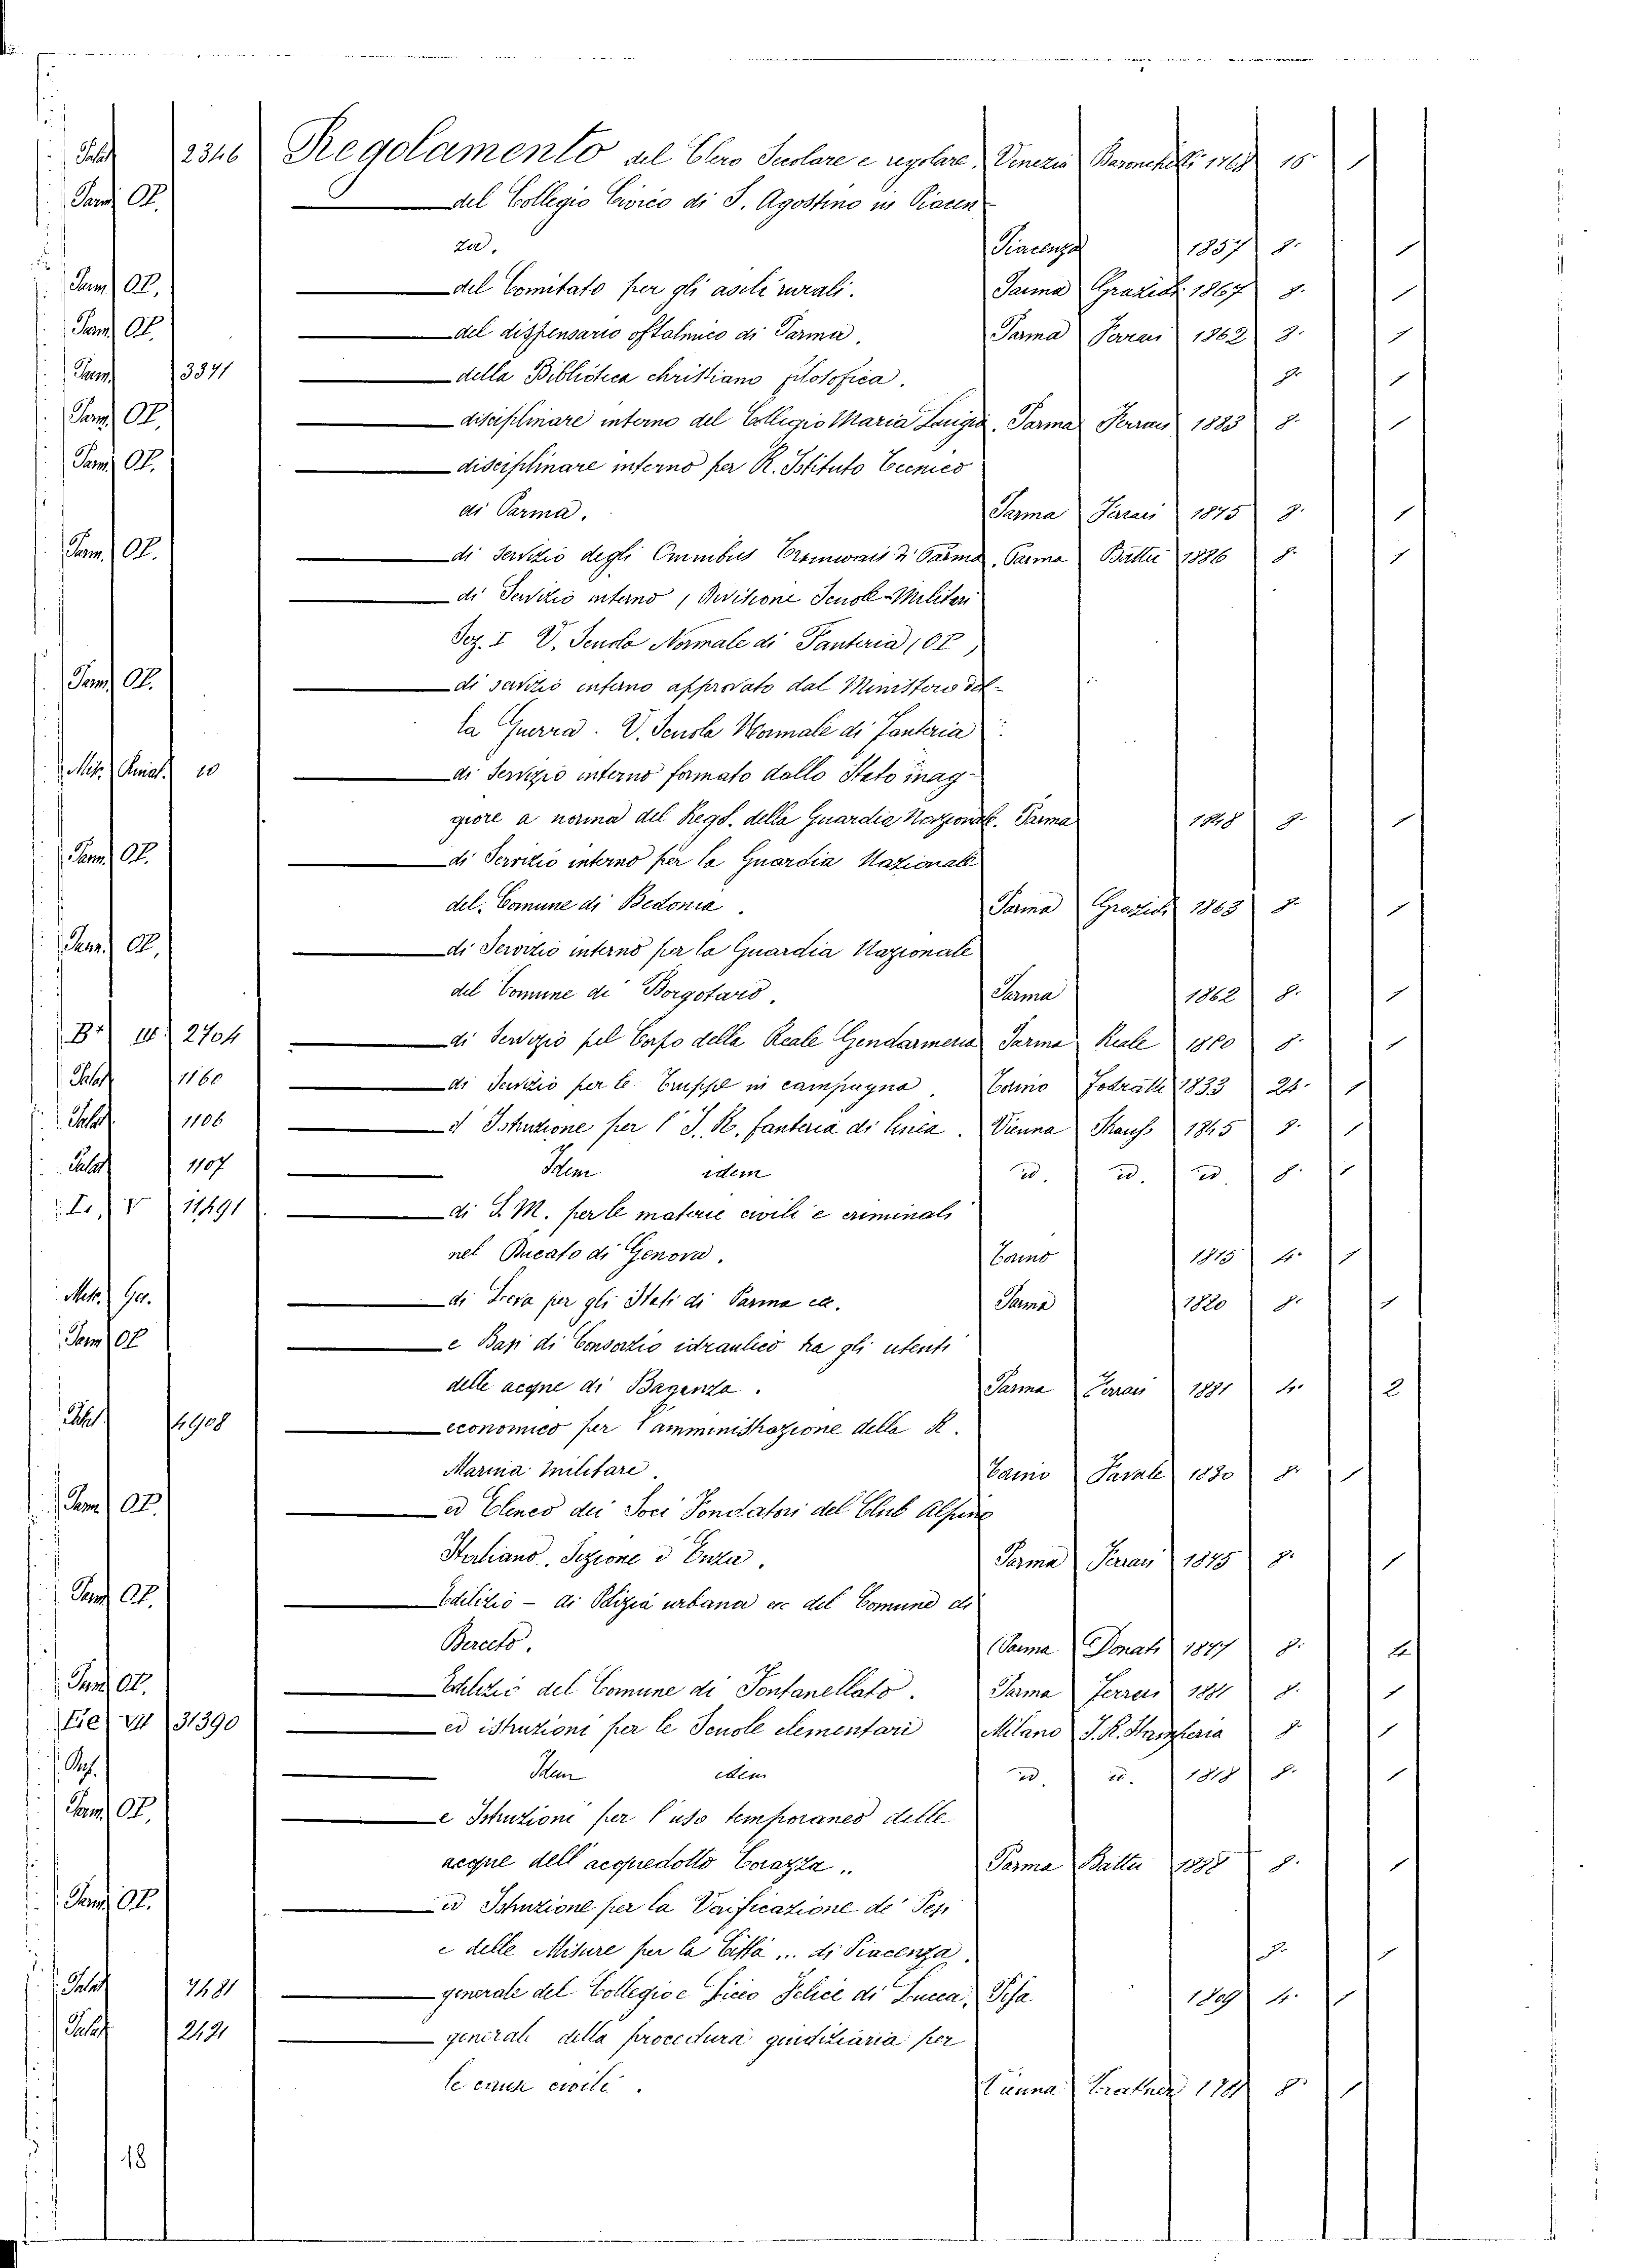 Palat 2346 Regolamento del Clero Secolare e regolare. Venezia Baronchelli 1768 16° 1
Parm. Op. — del Collegio Civico di S. Agostino in Piacen-
za. Piacenza 1857 8. 1
Parm. Op. — del Comitato per gli asili rurali. Parma Grazioli 1867 8. 1
Parm. Op. — del dispensario oftalmico di Parma. Parma Ferrari 1862 8. 1
Parm. 3341 — della Biblioteca christiano filosofica. 8. 1
Parm. Op. — disciplinare interno del Collegio Maria Luigia. Parma Ferrari 1883 8. 1
Parm. Op. — disciplinare interno per R. Istituto
di Parma. Parma Ferrari 1875 8. 1
Parm. Op. — di Servizio degli Omnibus Cromwais di Parma. Parma Battei 1886 8. 1
— di Servizio interno (Divisione Scuole Militari
Sez. I V. Scuola Normale di Fanteria) OP.
Parm. Op. — di servizio interno approvato dal Ministero del-
la Guerra. V. Scuola Normale di Fanteria
Mis. 10 — di Servizio interno formato dallo Stato mag-
giore a norma del Regol. della Guardia Nazionale. Parma 1848 8. 1
Parm. Op. — di Servizio interno per la Guardia Nazionale
del Comune di Bedonia. Parma Grazioli 1863 8. 1
Parm. Op. — di Servizio interno per la Guardia Nazionale
del Comune di Borgotaro. Parma 1862 8. 1
B* III. 2704 — di Servizio pel Corpo della Reale Gendarmeria Parma Reale 1850 8. 1
Palat 1160 — di Servizio per le Truppe in campagna. Torino Fodratti 1833 24. 1
Palat 1106 — d'Istruzione per l'I. R. fanteria di linea. Vienna Strauss 1845 8. 1
Palat 1107 — Idem idem id. id. id. 8. 1
L. V 11491 — di S. M. per le materie civili e criminali
nel Ducato di Genova. Torino 1815 4. 1
Mis. Ger. — di Leva per gli Stati di Parma ecc. Parma 1820 8. 1
Parm Op — e Basi di Consorzio idraulico tra gli utenti
delle acque di Baganza. Parma Ferrari 1881 4. 2
Palat. 4908 — economico per l'amministrazione della R.
Marina Militare. Torino Favale 1830 8. 1
Parm. Op. — ed Elenco dei Soci Fondatori del Club Alpino
Italiano, Sezione d'Enza. Parma Ferrari 1875 8. 1
Parm. Op. — Edilizio - di Polizia urbana ecc del Comune di
Berceto. Parma Donati 1877 8. 2
Parm. Op. — Edilizio del Comune di Fontanellato. Parma Ferrari 1881 8. 1
VII 31390 — ed istruzioni per le Scuole elementari Milano I. R. Stamperia 8. 1
— Idem idem id. id. 1818 8. 1
Parm. Op. — e Istruzioni per l'uso temporaneo delle
acque dell'acquedotto Corazza.. Parma Battei 1888 8. 1
Parm. Op. — ed Istruzione per la Verificazione de' Pesi
e delle Misure per la Città... di Piacenza. 8. 1
Palat 7481 — generale del Collegio e Liceo Felice di Lucca. Pisa 1809 4. 1
Palat 2491 — generale della procedura giudiziaria per
le cause civili. Vienna Trattner 1781 8. 1
18